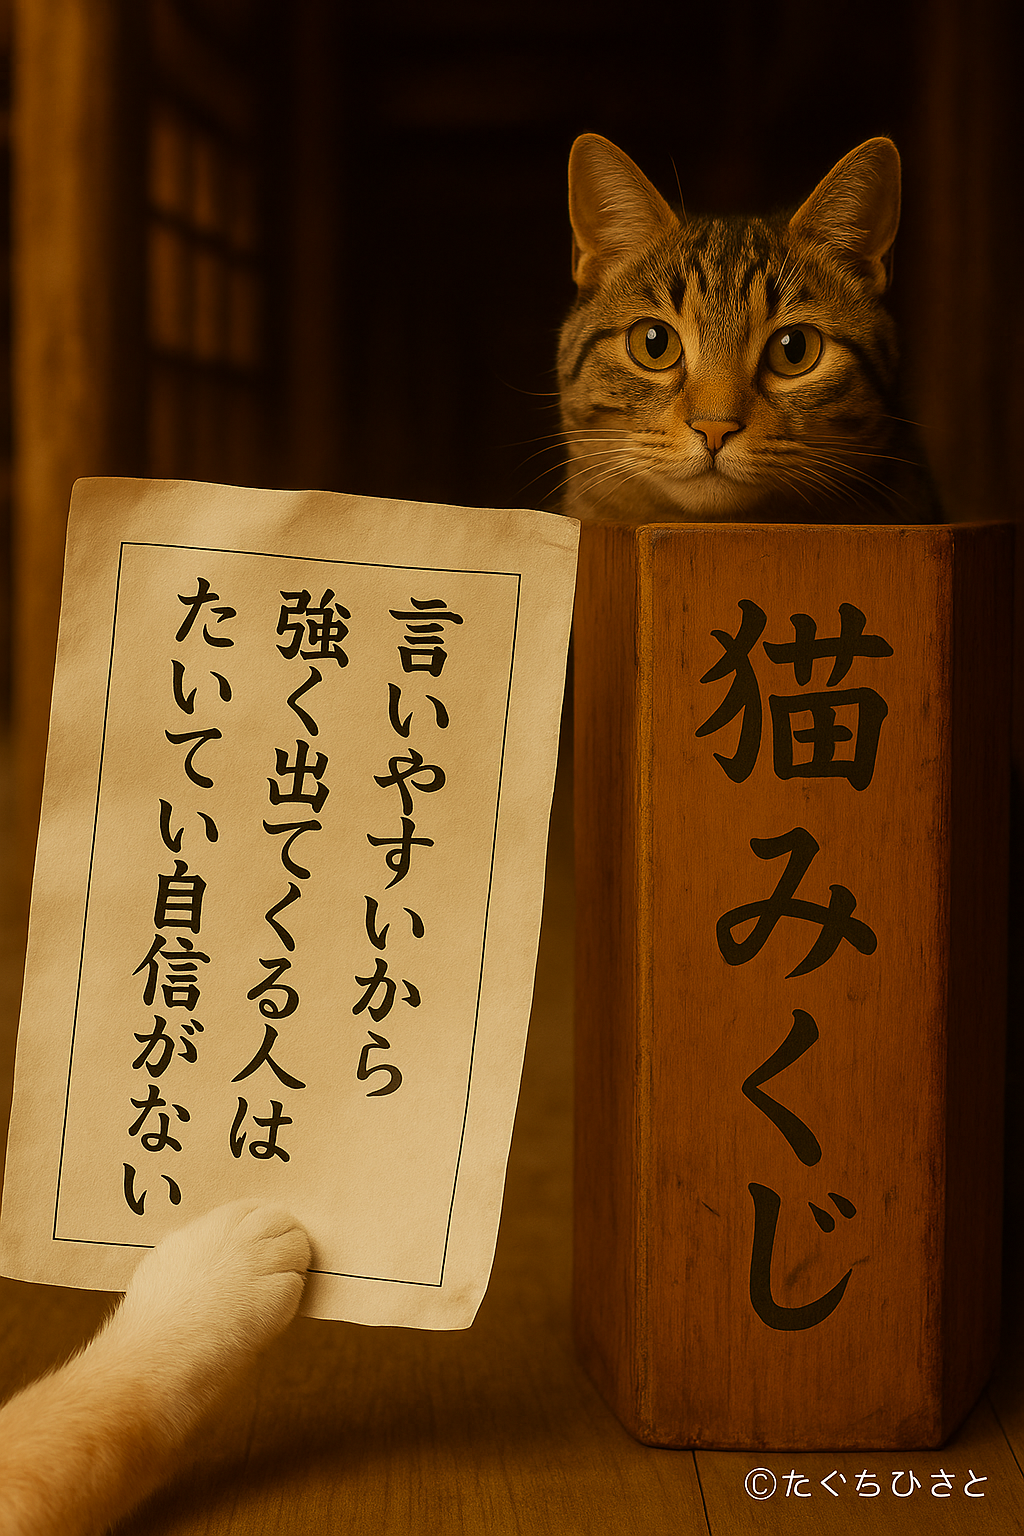 言いやすいから
強く出てくる人は
たいてい自信がない
猫みくじ
©たぐちひさと